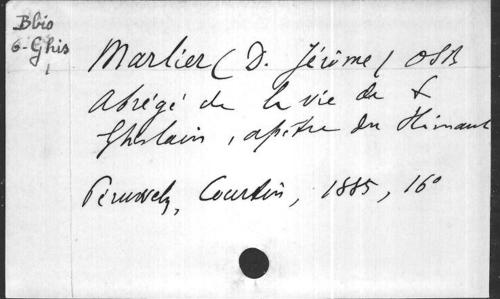 Bbio
6-Ghis
1
Marlier ( D. Jérôme ) OSB
Abrégé de la vie de S
Ghislain, apôtre du Hainaut
Péruwelz, Courtin, 1885, 16°